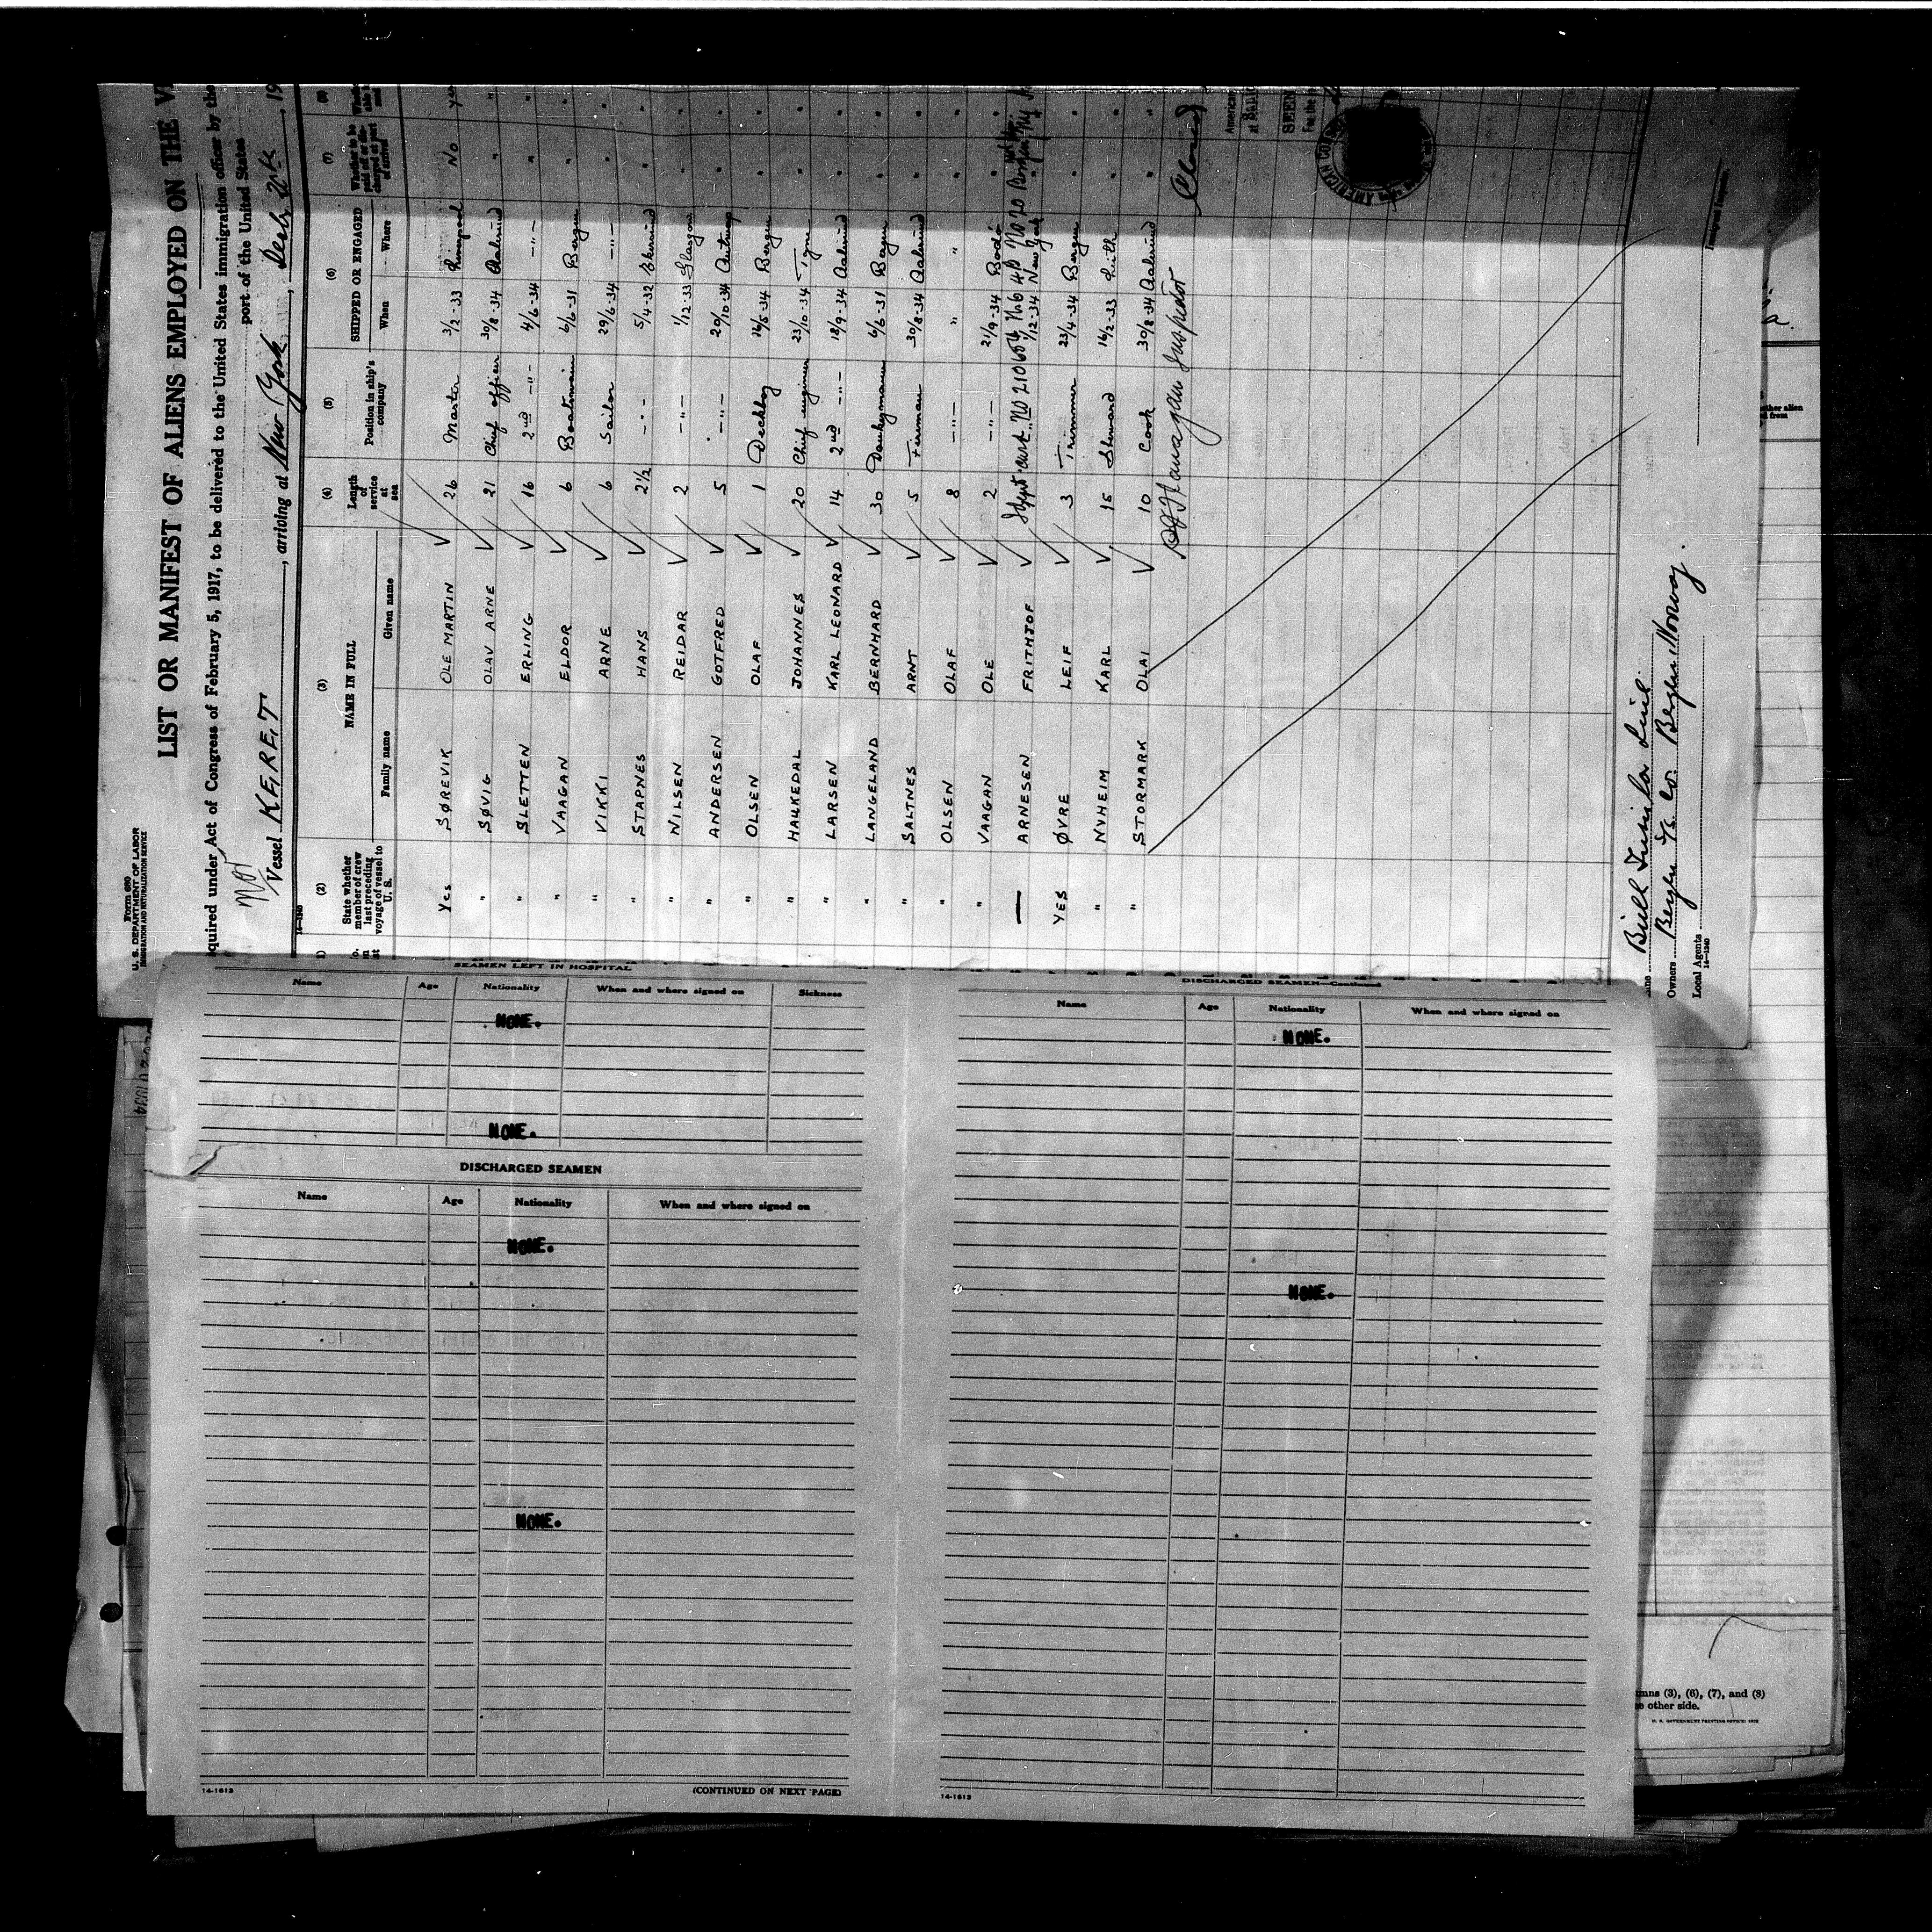 Form 680
U. S. DEPARTMENT OF LABOR
IMMIGRATION AND NATURALIZATION SERVICE
LIST OR MANIFEST OF ALIENS EMPLOYED ON THE
equired under Act of Congress of February 5, 1917, to be delivered to the United States immigration officer by the
port of the United States
Vessel KERET, arriving at New York, 19
14-1240
(2) (3) (4) (5) (6) (7)
State whether member of crew last preceding voyage of vessel to U. S.
NAME IN FULL
Family name Given name
Length of service at sea
Position in ship's company
SHIPPED OR ENGAGED
When Where
Whether to be paid off or discharged at port of arrival
Yes SØREVIK OLE MARTIN 26 Master 3/2-33 Liverpool No yes
" SØVIG OLAV ARNE 21 Chief officer 30/8-34 Aalesund " "
" SLETTEN ERLING 16 2nd -"- 4/6-34 -"- " "
" VAAGAN ELDOR 6 Boatswain 6/6-31 Bergen " "
" VIKKI ARNE 6 Sailor 29/6-34 -"- " "
" STAPNES HANS 2½ -"- 5/4-32 " "
" NILSEN REIDAR 2 -"- 1/12-33 Glasgow " "
" ANDERSEN GOTFRED 5 -"- 20/10-34 Antwerp " "
" OLSEN OLAF 1 Deckboy 16/5-34 Bergen " "
" HAUKEDAL JOHANNES 20 Chief engineer 23/10-34 Tyne " "
" LARSEN KARL LEONARD 14 2nd -"- 18/9-34 Aalesund " "
" LANGELAND BERNHARD 30 Donkeyman 6/6-31 Bergen " "
" SALTNES ARNT 5 Fireman 30/8-34 Aalesund " "
" OLSEN OLAF 8 -"- " " " "
" VAAGAN OLE 2 -"- 21/9-34 Bodö " "
— ARNESEN FRITHJOF 1/12-34 New York
YES ØVRE LEIF 3 Trimmer 23/4-34 Bergen " "
" NYHEIM KARL 15 Steward 16/2-33 Leith " "
" STORMARK OLAI 10 Cook 30/8-34 Aalesund " "
Flanagan Inspector
Closed
American
at
SEEN
For the
Owners Bergen Norway.
Local Agents
14-1240
Immigrant Inspector.
SEAMEN LEFT IN HOSPITAL
Name Age Nationality When and where signed on Sickness
NONE.
NONE.
DISCHARGED SEAMEN
Name Age Nationality When and where signed on
NONE.
NONE.
14-1613 (CONTINUED ON NEXT PAGE)
DISCHARGED SEAMEN—Continued
Name Age Nationality When and where signed on
NONE.
NONE.
14-1613
other alien
from
mns (3), (6), (7), and (8)
e other side.
U. S. GOVERNMENT PRINTING OFFICE